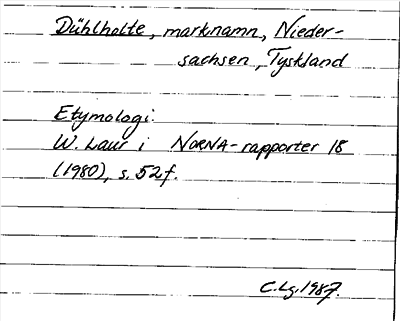 Dühlholte, marknamn, Nieder-
sachsen, Tyskland
Etymologi:
W. Laur i NORNA-rapporter 18
(1980), s. 52f.
C.Lg. 1987.